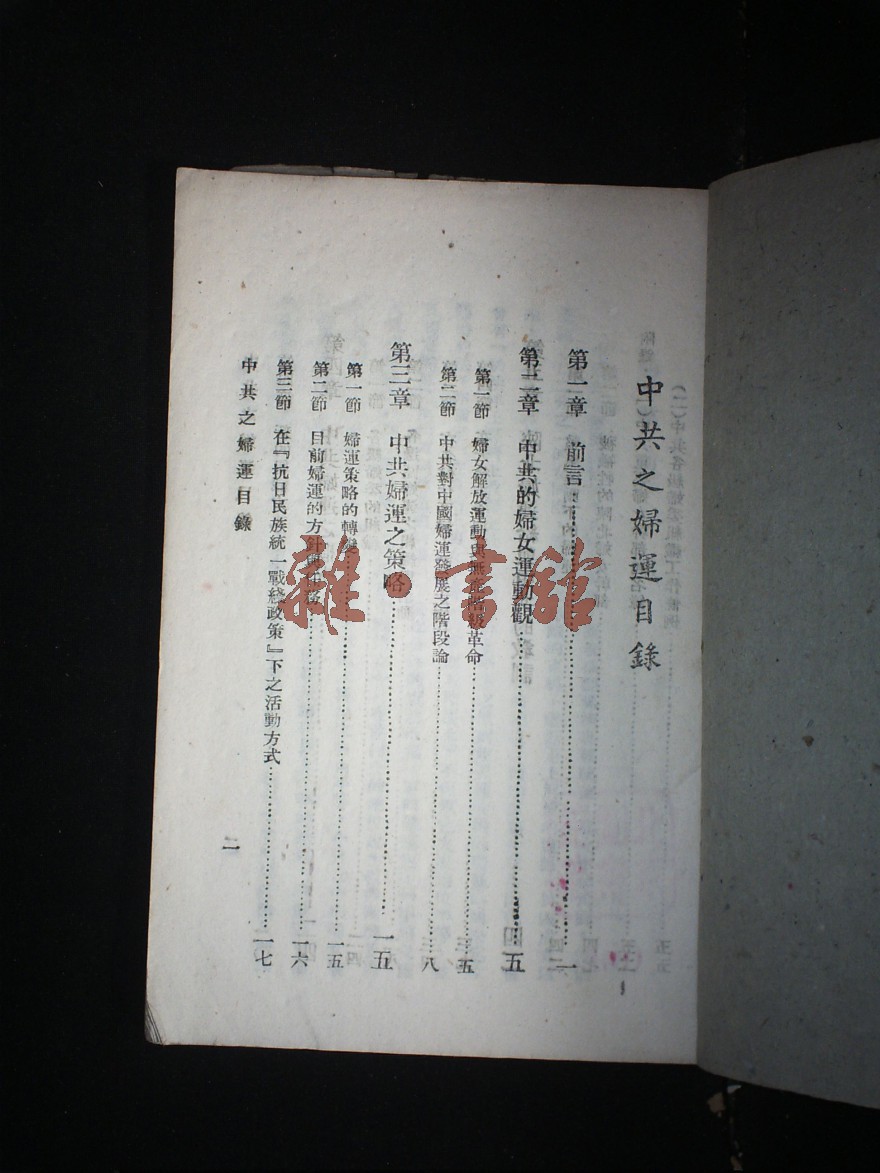 中共之婦運目錄
第一章 前言……一
第二章 中共的婦女運動觀……五
第一節 婦女解放運動與無產階級革命……五
第二節 中共對中國婦運發展之階段論……八
第三章 中共婦運之策略……一五
第一節 婦運策略的轉變……一五
第二節 目前婦運的方針與任務……一六
第三節 在『抗日民族統一戰綫政策』下之活動方式……一七
中共之婦運目錄
雜·書館